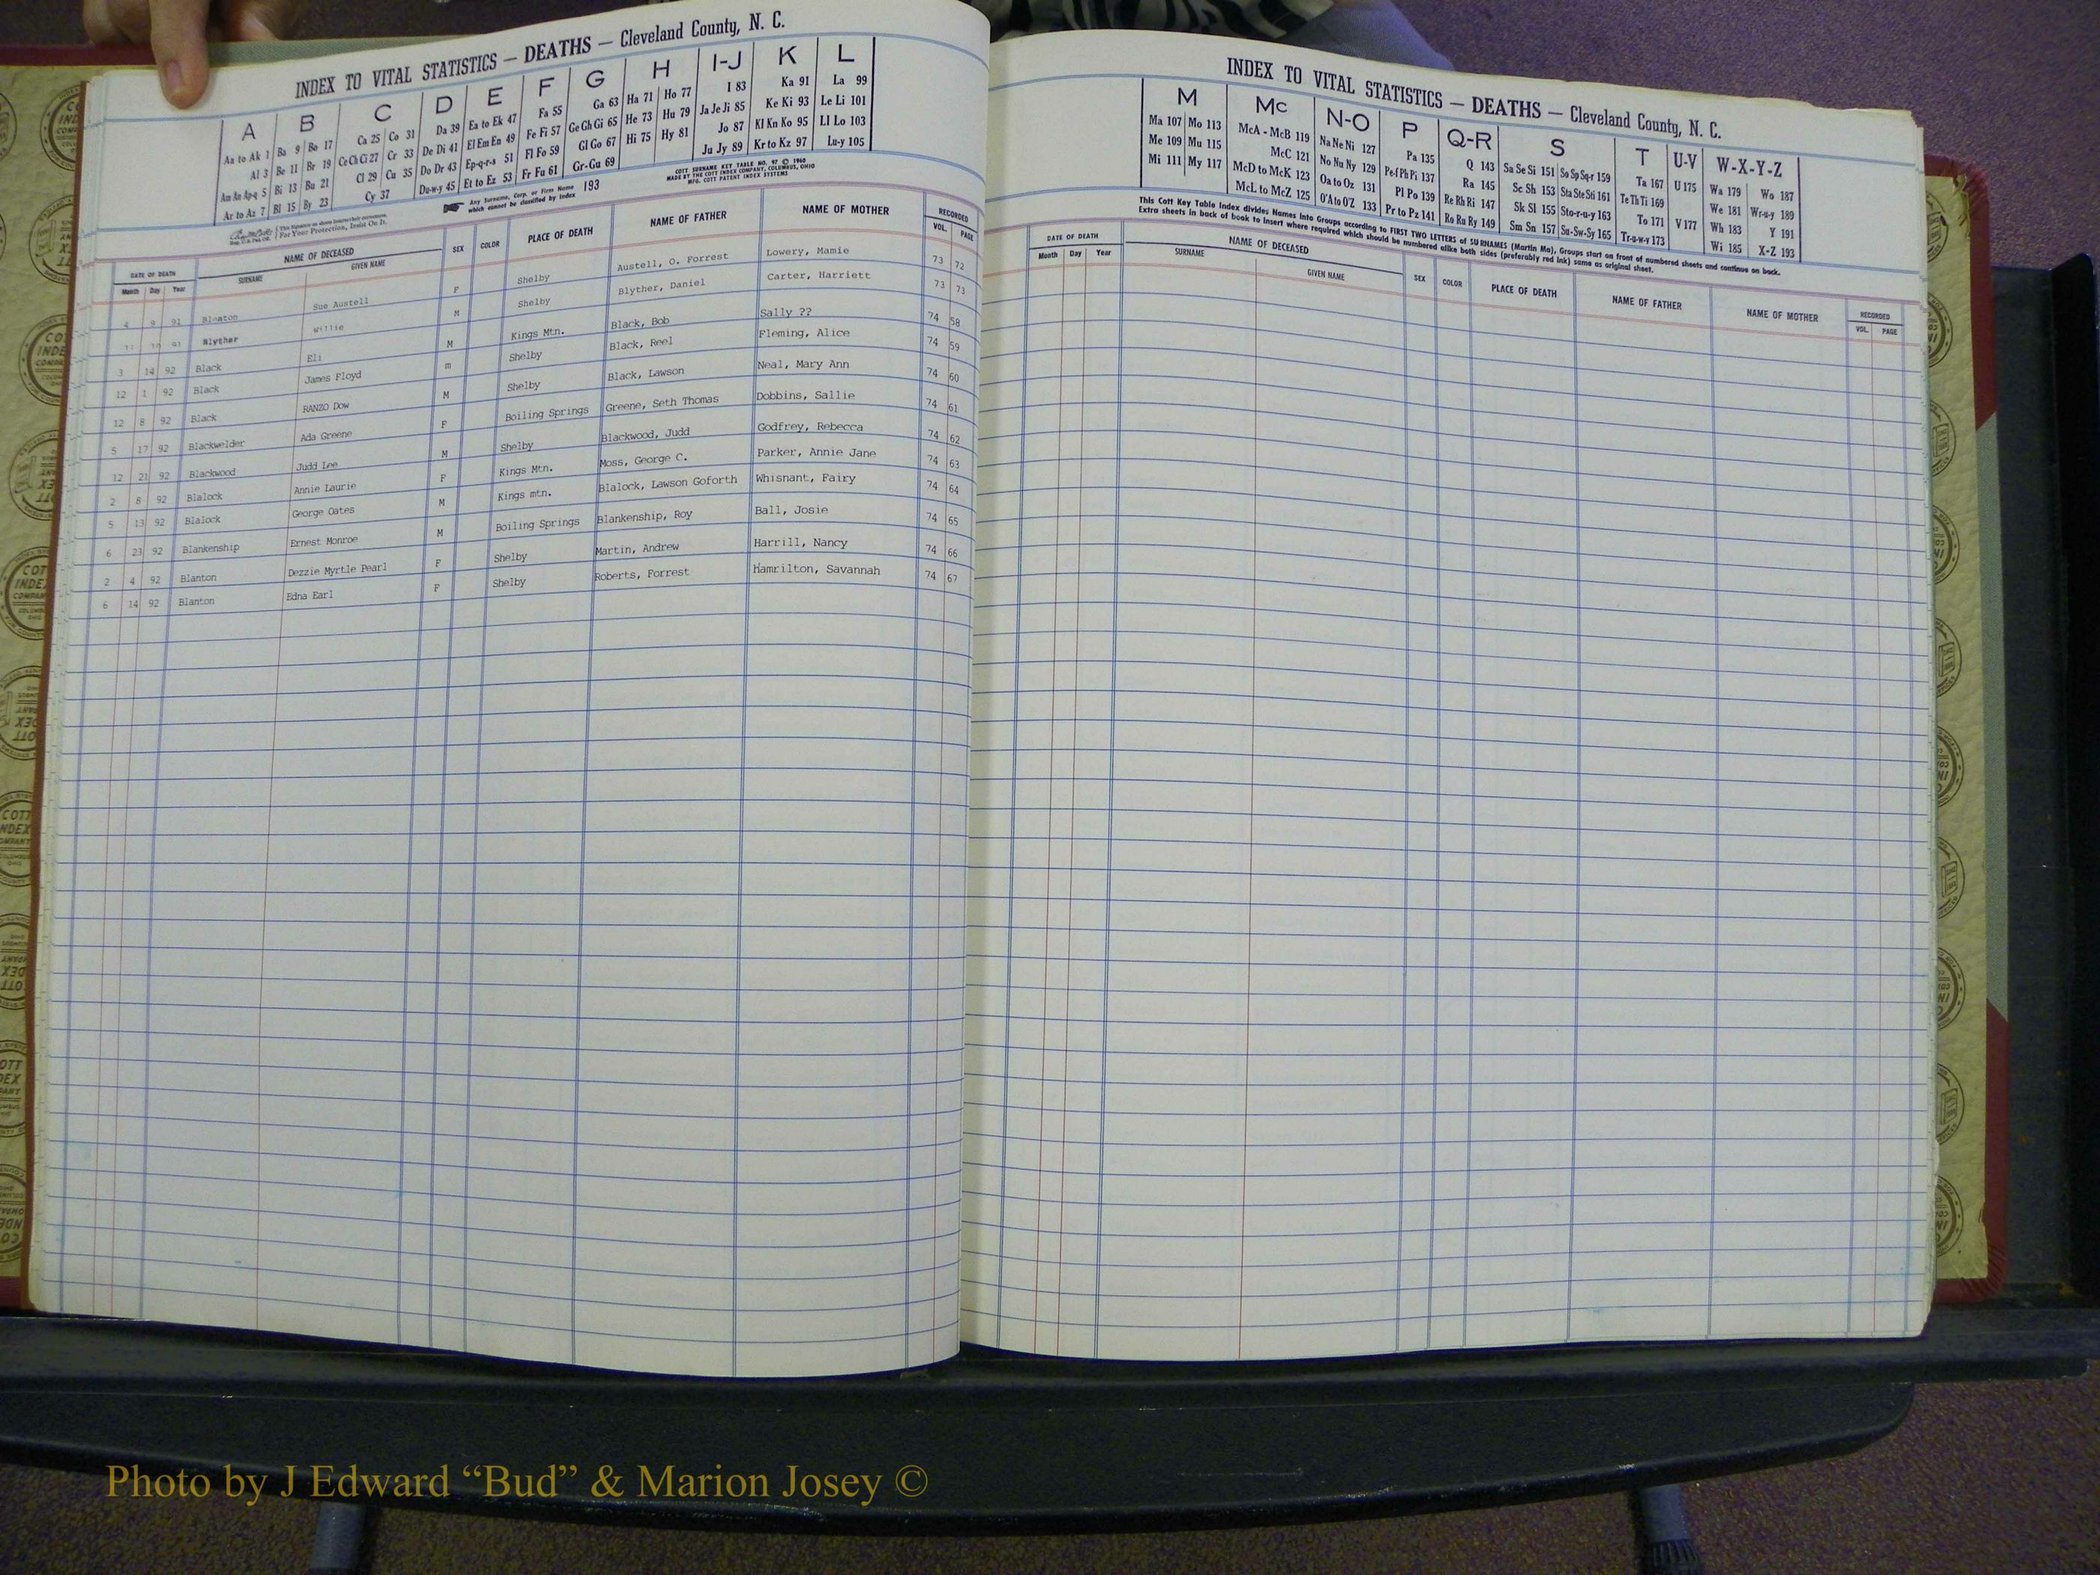 INDEX TO VITAL STATISTICS — DEATHS — Cleveland County, N. C.
A B C D E F G H I-J K L
Aa to Ak 1 Ba 9 Bo 17 Ca 25 Co 31 Da 39 Ea to Ek 47 Fa 55 Ga 63 Ha 71 Ho 77 I 83 Ka 91 La 99
Al 3 Be 11 Br 19 Ce Ch Ci 27 Cr 33 De Di 41 El Em En 49 Fe Fi 57 Ge Gh Gi 65 He 73 Hu 79 Ja Je Ji 85 Ke Ki 93 Le Li 101
Am An Ap-q 5 Bi 13 Bu 21 Cl 29 Cu 35 Do Dr 43 Ep-q-r-s 51 Fl Fo 59 Gl Go 67 Hi 75 Hy 81 Jo 87 Kl Kn Ko 95 Ll Lo 103
Ar to Az 7 Bl 15 By 23 Cy 37 Du-w-y 45 Et to Ez 53 Fr Fu 61 Gr-Gu 69 Ju Jy 89 Kr to Kz 97 Lu-y 105
For Your Protection, Insist On It.
Any Surname, Corp. or Firm Name which cannot be classified by Index 193
COTT SURNAME KEY TABLE NO. 97 © 1960
MADE BY THE COTT INDEX COMPANY, COLUMBUS, OHIO
MFG. COTT PATENT INDEX SYSTEMS
DATE OF DEATH NAME OF DECEASED SEX COLOR PLACE OF DEATH NAME OF FATHER NAME OF MOTHER RECORDED
Month Day Year SURNAME GIVEN NAME VOL. PAGE
4 9 91 Blanton Sue Austell F Shelby Austell, O. Forrest Lowery, Mamie 73 72
11 10 91 Blyther Willie M Shelby Blyther, Daniel Carter, Harriett 73 73
3 14 92 Black Eli M Kings Mtn. Black, Bob Sally ?? 74 58
12 1 92 Black James Floyd m Shelby Black, Reel Fleming, Alice 74 59
12 8 92 Black RANZO Dow M Shelby Black, Lawson Neal, Mary Ann 74 60
5 17 92 Blackwelder Ada Greene F Boiling Springs Greene, Seth Thomas Dobbins, Sallie 74 61
12 21 92 Blackwood Judd Lee M Shelby Blackwood, Judd Godfrey, Rebecca 74 62
2 8 92 Blalock Annie Laurie F Kings Mtn. Moss, George C. Parker, Annie Jane 74 63
5 13 92 Blalock George Oates M Kings mtn. Blalock, Lawson Goforth Whisnant, Fairy 74 64
6 23 92 Blankenship Ernest Monroe M Boiling Springs Blankenship, Roy Ball, Josie 74 65
2 4 92 Blanton Dezzie Myrtle Pearl F Shelby Martin, Andrew Harrill, Nancy 74 66
6 14 92 Blanton Edna Earl F Shelby Roberts, Forrest Hamrilton, Savannah 74 67
INDEX TO VITAL STATISTICS — DEATHS — Cleveland County, N. C.
M Mc N-O P Q-R S T U-V W-X-Y-Z
Ma 107 Mo 113 McA - McB 119 Na Ne Ni 127 Pa 135 Q 143 Sa Se Si 151 So Sp Sq-r 159 Ta 167 U 175 Wa 179 Wo 187
Me 109 Mu 115 McC 121 No Nu Ny 129 Pe-f Ph Pi 137 Ra 145 Sc Sh 153 Sta Ste Sti 161 Te Th Ti 169 We 181 Wr-u-y 189
Mi 111 My 117 McD to McK 123 Oa to Oz 131 Pl Po 139 Re Rh Ri 147 Sk Sl 155 Sto-r-u-y 163 To 171 V 177 Wh 183 Y 191
McL to McZ 125 O'A to O'Z 133 Pr to Pz 141 Ro Ru Ry 149 Sm Sn 157 Su-Sw-Sy 165 Tr-u-w-y 173 Wi 185 X-Z 193
This Cott Key Table Index divides Names into Groups according to FIRST TWO LETTERS of SURNAMES (Martin Ma), Groups start on front of numbered sheets and continue on back.
Extra sheets in back of book to insert where required which should be numbered alike both sides (preferably red ink) same as original sheet.
DATE OF DEATH NAME OF DECEASED SEX COLOR PLACE OF DEATH NAME OF FATHER NAME OF MOTHER RECORDED
Month Day Year SURNAME GIVEN NAME VOL. PAGE
Photo by J Edward “Bud” & Marion Josey ©